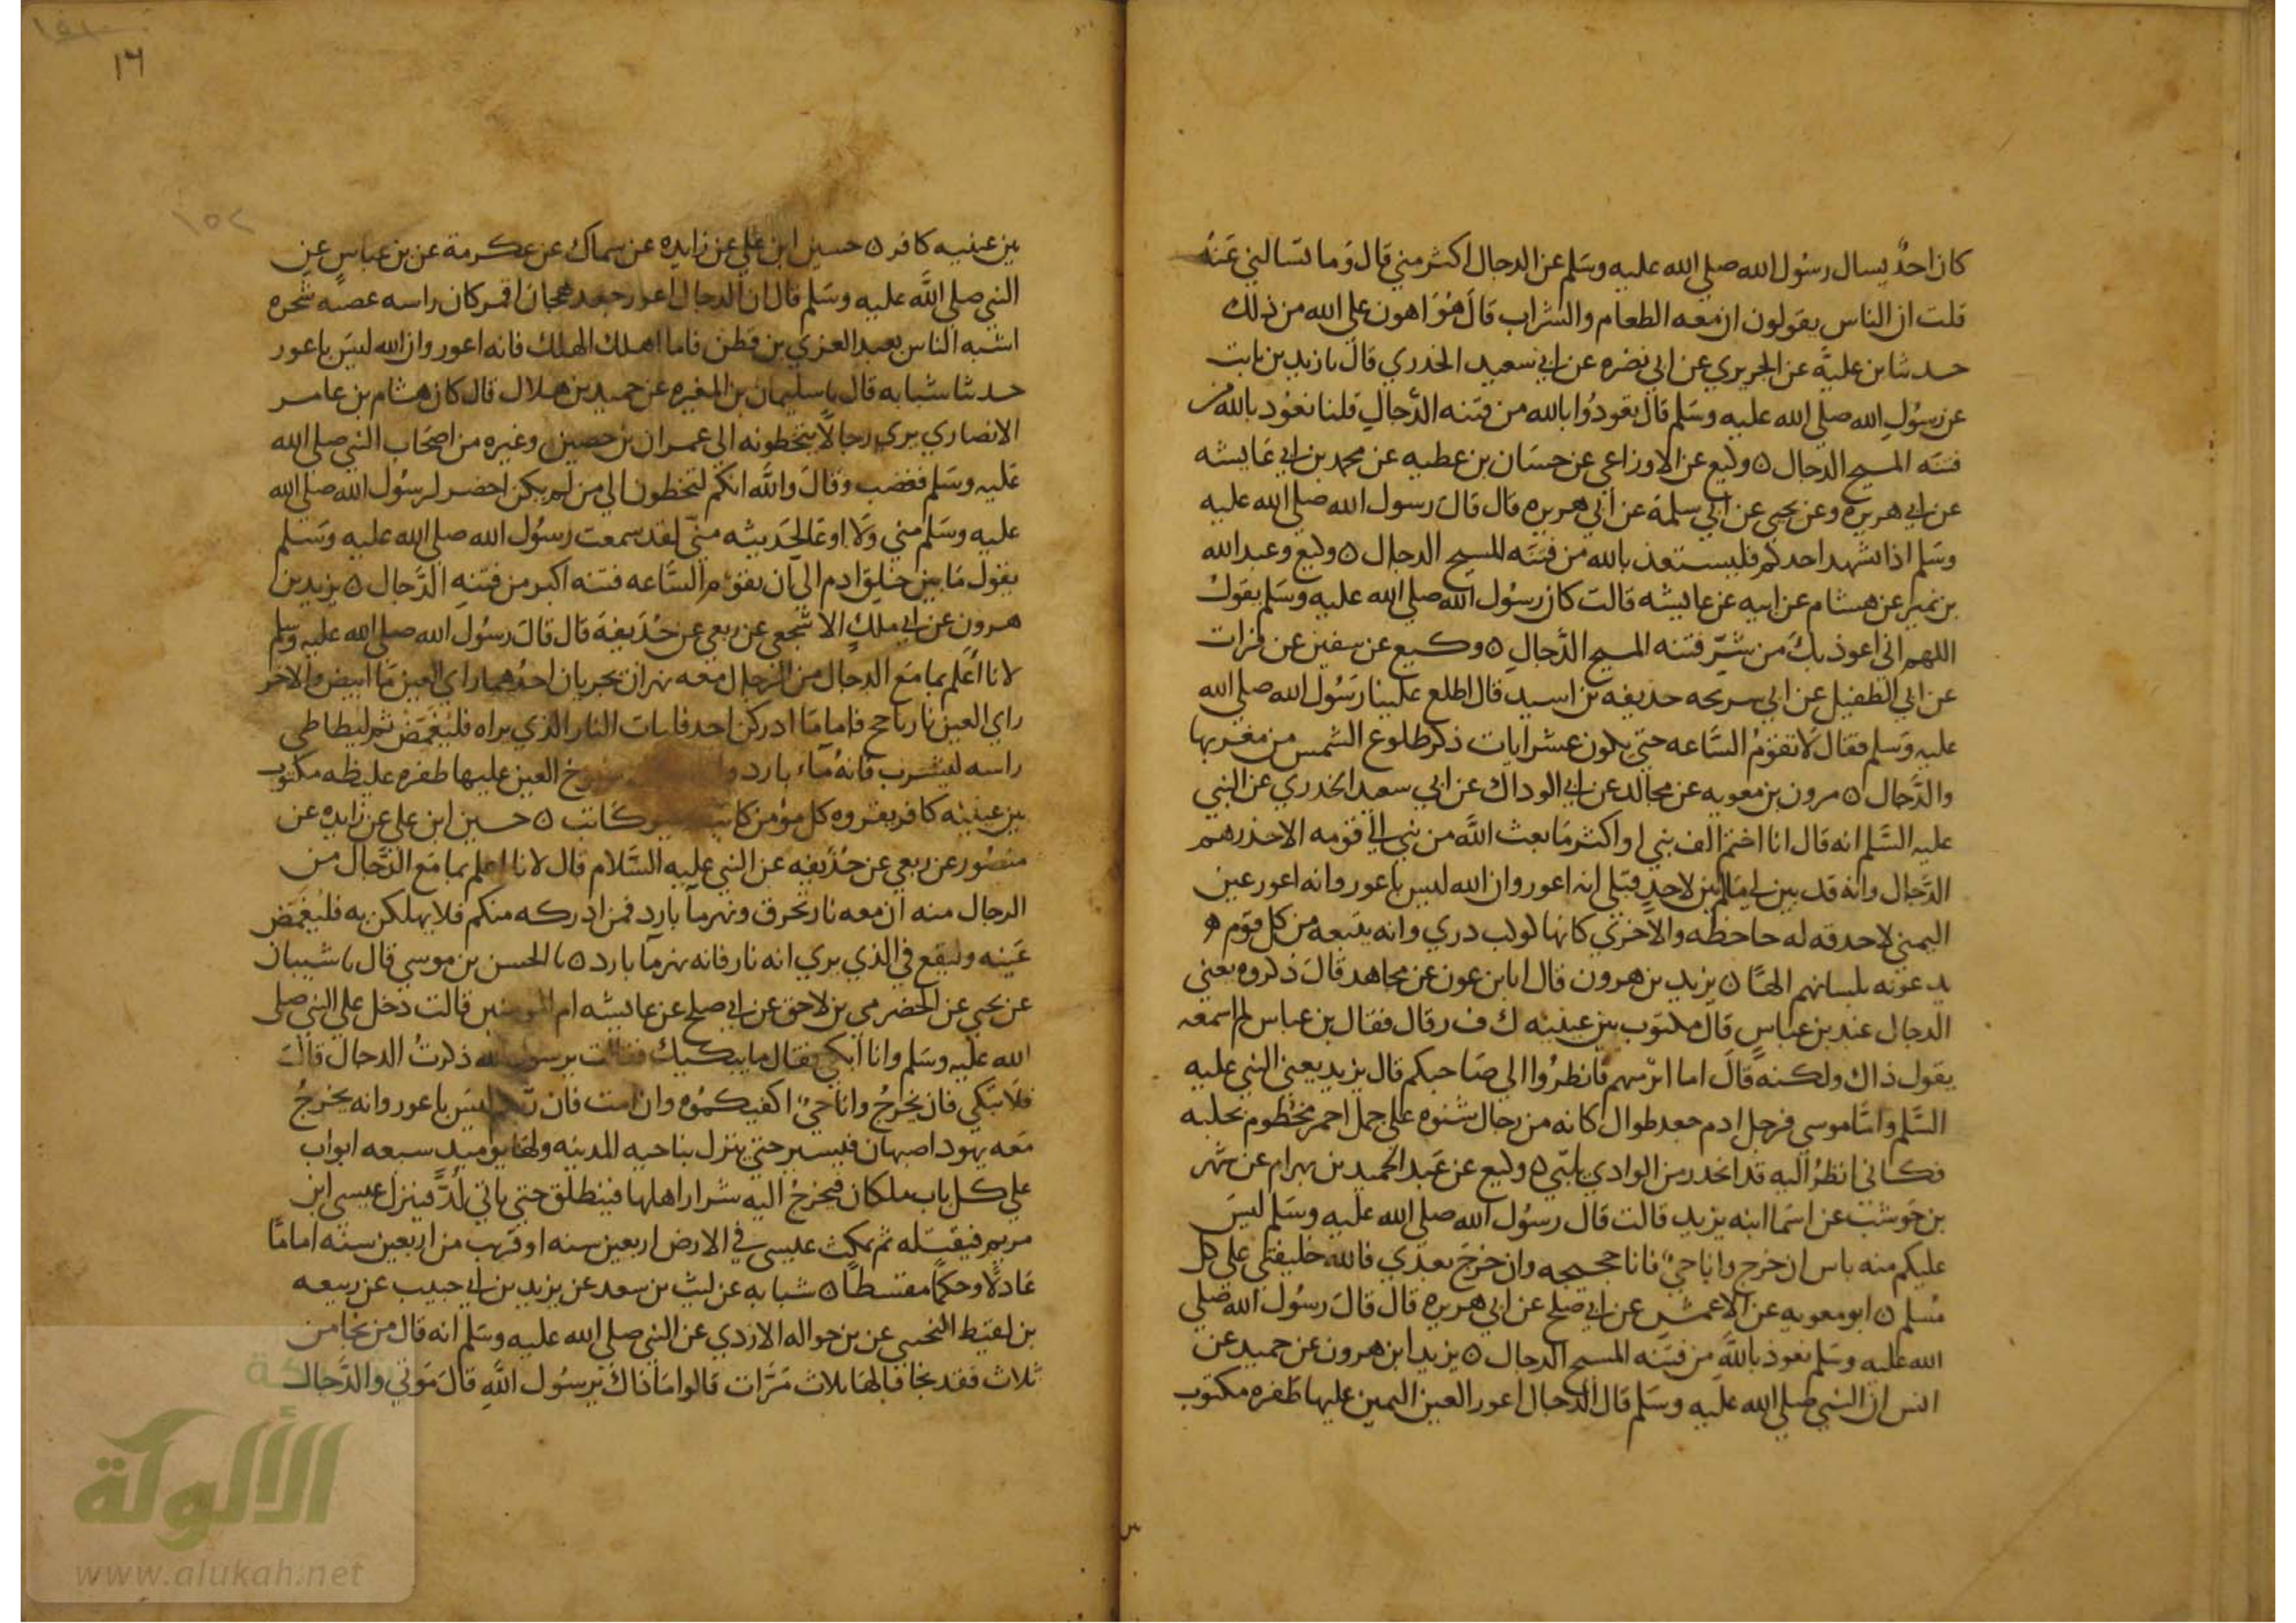 كان احدٌ يسال رسُول الله صلى الله عليه وسَلم عن الدجال اكثر مني قال وَما تسَالني عَنهُ
قلت ان الناس يقولون ان معه الطعام والشراب قال هُوَ اهون على الله من ذلك
حدثنا بن عليةَ عن الجريري عن ابي نضره عن ابي سعيد الخدري قال نا زيد بن ثابت
عن رسُولِ الله صلى الله عليه وسَلم قال تعوذُوا بالله من فتنه الدَّجالِ قلنا نعوُذ بالله من
فتنَه المسيح الدجال ٥ وكيع عن الاوزاعي عن حسَان بن عطيه عن محمد بن ابي عَايشه
عن ابي هريره وعن يحيى عن ابي سلمة عن ابي هريره قال قالَ رسول الله صلى الله عليه
وسَلم اذا تشهد احدكم فليستعذ بالله من فتنَه المسيح الدجال ٥ وكيع وعبد الله
بن نمير عن هشام عن ابيه عن عايشه قالت كان رسُول الله صلى الله عليه وسَلم يقولُ
اللهم اني اعوذ بكَ من شرِّ فتنه المسيح الدَّجالِ ٥ وكيع عن سفين عن فرات
عن ابي الطفيل عن ابي سريحه حذيفه بن اسيد قال اطلع علينا رَسُول الله صلى الله
عليه وسَلم فقال لاَ تقوُمُ السَّاعه حتى يكون عشر ايات ذكر طلوع الشمس من مغربها
والدَّجال ٥ مرون بن معويه عن مجالد عن ابي الوداك عن ابي سعيد الخدري عن النبي
عليه السَّلم انه قال انا اختم الف نبي او اكثر مَا بعث الله من نبي الى قومه الا حذرهم
الدَّجال وانه قد بين لي مَا لم يبين لاحدٍ قبلي انه اعور وان الله ليس باعور وانه اعور عين
اليمنى لا حدقه له جاحظه والاخرى كانها كوكب دري وانه يتبعه من كل قوم
يدعونه بلسانهم الهًا ٥ يزيد بن هرون قال انا بن عون عن مجاهد قالَ ذكروه يعني
الدجال عند بن عباسٍ قال مكتوَب بين عينيه ك ف ر قال فقال بن عباس لم اسمعه
يقول ذاك ولكنه قال اما ابرهيم فانظرُوا الى صَاحبكم قال يزيد يعني النبي عليه
السَّلم وامَّا موسى فرجل ادم جعد طوال كانه من رجال شنوه على جمل احمر مخطوم بخلبه
فكاني انظرُ اليه قد انحدر من الوادي يلبّي ٥ وكيع عن عَبد الحميد بن بهرام عن شهر
بن حَوشب عن اسَما ابنه يزيد قالت قال رسُول الله صلى الله عليه وسَلم ليسَ
عليكم منه باس ان خرج وانا حيٌ فانا حجيجه وان خرَج بعدي فالله خليفتي على كل
مُسلم ٥ ابو معويه عن الاعمش عن ابي صلح عن ابي هريره قال قالَ رسُول الله صَلى
الله عليه وسَلم نعوذ بالله من فتنَه المسيح الدجال ٥ يزيد ابن هرون عن حميد عن
انس ان النبي صلى الله عليه وسَلم قال الدجال اعور العين اليمين عليها ظَفره مكتوب
بين عينيه كافر ٥ حسين ابن علي عن زايده عن سماك عن عكرمة عن بن عباسٍ عن
النبي صلى الله عليه وسَلم قال ان الدجال اعور جعد هجان اقمر كان راسه غصنه شجره
اشبه الناس بعبد العزي بن قطن فاما اهلك الهلك فانه اعور وان الله ليسَ باعور
حدثنا شبابه قال نا سليمان بن المغيره عن حميد بن هلال قال كان هشام بن عامر
الانصاري يرى رجالاً يتخطونه الى عمران بن حصين وغيره من اصحَاب النبي صلى الله
عَليه وسَلم فغضب وقالَ والله انكم لتخطون الى من لم يكن احضر لرسُول الله صلى الله
عليه وسَلم مني وَلا اوعَا لحَديثه منّي لقد سمعت رسُول الله صلى الله عليه وسَلم
يقول مَا بين خلق ادم الى اَن تقوُم السَّاعه فتنه اكبر من فتنهِ الدَّجال ٥ يزيد بن
هرون عن ابي ملك الاشجعي عن ربعي عن حُذَيفة قال قالَ رسُول الله صلى الله عليه وسَلم
لانا اعلم بما مَع الدجال من الدجال معه نهران تجريان احدُهما راي العين مَا ابيض والاخر
راي العين نار تاجج فاما مَا ادركن احد فليات النار الذي يراه فليغَمّضْ ثم ليطاطي
راسه ليشرب فانهُ مَاء بارد العين عليها ظفره غليظه مكتوب
بين عينيه كافر يقروه كل مؤمن كاتب كاتب ٥ حسين ابن علي عن زايده عن
منصُور عن ربعي عن حُذَيفه عن النبي عليه السَّلام قال لانا اعلم بما مَع الدَّجال من
الدجال منه ان معه نار تحرق ونهر مآ بارد فمن ادركه منكم فلا يهلكن به فليُغمَض
عَينه وليقع في الذي يرى انه نار فانه نهر مآ بارد ٥ نا الحسن بن موسى قال نا شيبان
عن يحيى عن الحضرمي بن لاحق عن ابي صلح عن عايشه ام المومنين قالت دخل علي النبي صلى
الله عليه وسَلم وانا ابكي فقال ما يبكيك فقالت يرسول الله ذكرتُ الدجال قالَ
فلاَ تبكي فان يخرجُ وانا حيٌ اكفيكموُه وان امت فان ربكم ليسَ باعور وانه يخرجُ
مَعه يهود اصبهان فيسير حتى ينزل بناحيه المدينه ولهَا يوميد سبعه ابواب
على كل باب ملكان فيخرجُ اليه شرار اهلها فينطلق حتى ياتي لُدَّ فينزل عيسى ابن
مريم فيقتله ثم يمكث عيسى في الارض اربعين سنه او قريب من اربعين سنه امامًا
عَادلًا وحكمًا مقسطًا ٥ شبابه عن ليث بن سعد عن يزيد بن ابي حبيب عن ربيعه
بن لقيط التجيبي عن بن حواله الازدي عن النبي صلى الله عليه وسَلم انه قال من نجَا من
ثلاث فقد نجا قالهَا ثلاث مَرَّات قالوا مَا ذاكَ يرسُول اللهِ قالَ مَوتي والدَّجال
١٦
١٥٢
شبكة
الألوكة
www.alukah.net